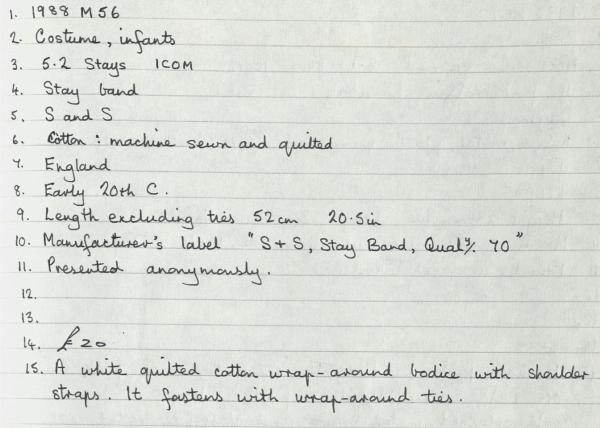 1. 1988 M 56
2. Costume, infants
3. 5.2 Stays ICOM
4. Stay band
5. S and S
6. Cotton : machine sewn and quilted
7. England
8. Early 20th C.
9. Length excluding ties 52cm 20.5in
10. Manufacturer's label "S+S, Stay Band, Qualy. 70"
11. Presented anonymously.
12.
13.
14. £20
15. A white quilted cotton wrap-around bodice with shoulder
straps. It fastens with wrap-around ties.